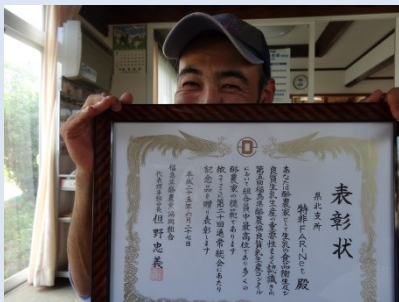 表彰状
県北支所
特非FAR-Net 殿
あなたは酪農家として生乳の食品衛生及び
良質生乳生産の重要性をよく認識され
第五回福島県酪農協良質生乳生産コンクール
において組合員中最高位であり多くの
酪農家の模範であります
依ってここに第二十回通常総会にあたり
記念品を贈り表彰します
平成二十五年六月二十七日
福島県酪農業協同組合
代表理事組合長 但野忠義